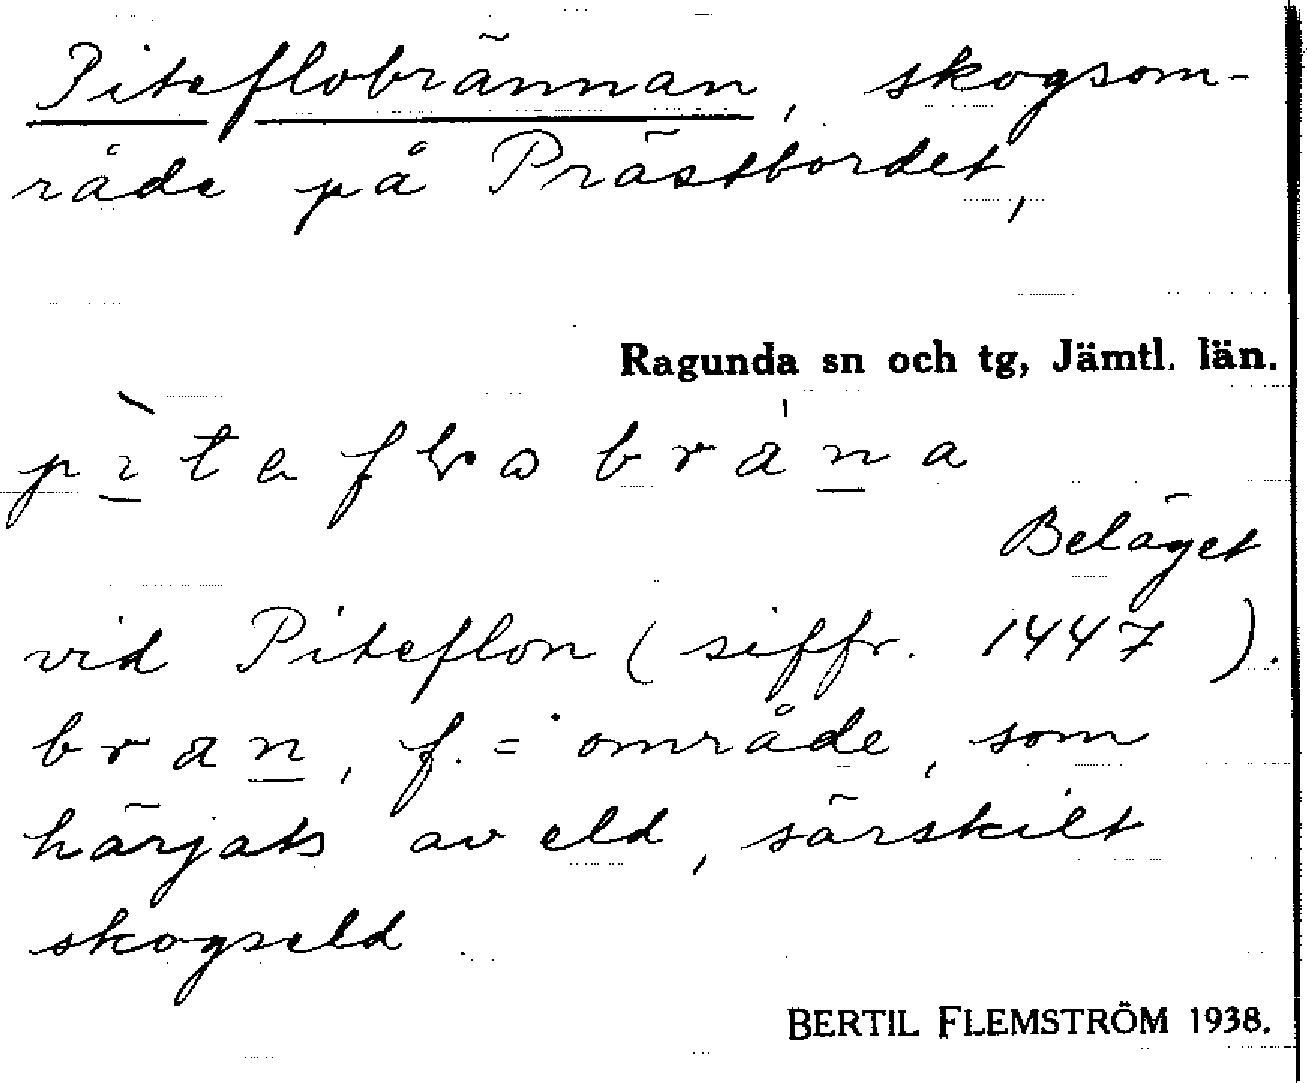 Piteflobrännan, skogsom-
råde på Prästbordet,
Ragunda sn och tg, Jämtl. län.
Beläget
vid Piteflon (siffr. 1447).
bran, f. = område, som
härjats av eld, särskilt
skogseld
BERTIL FLEMSTRÖM 1938.